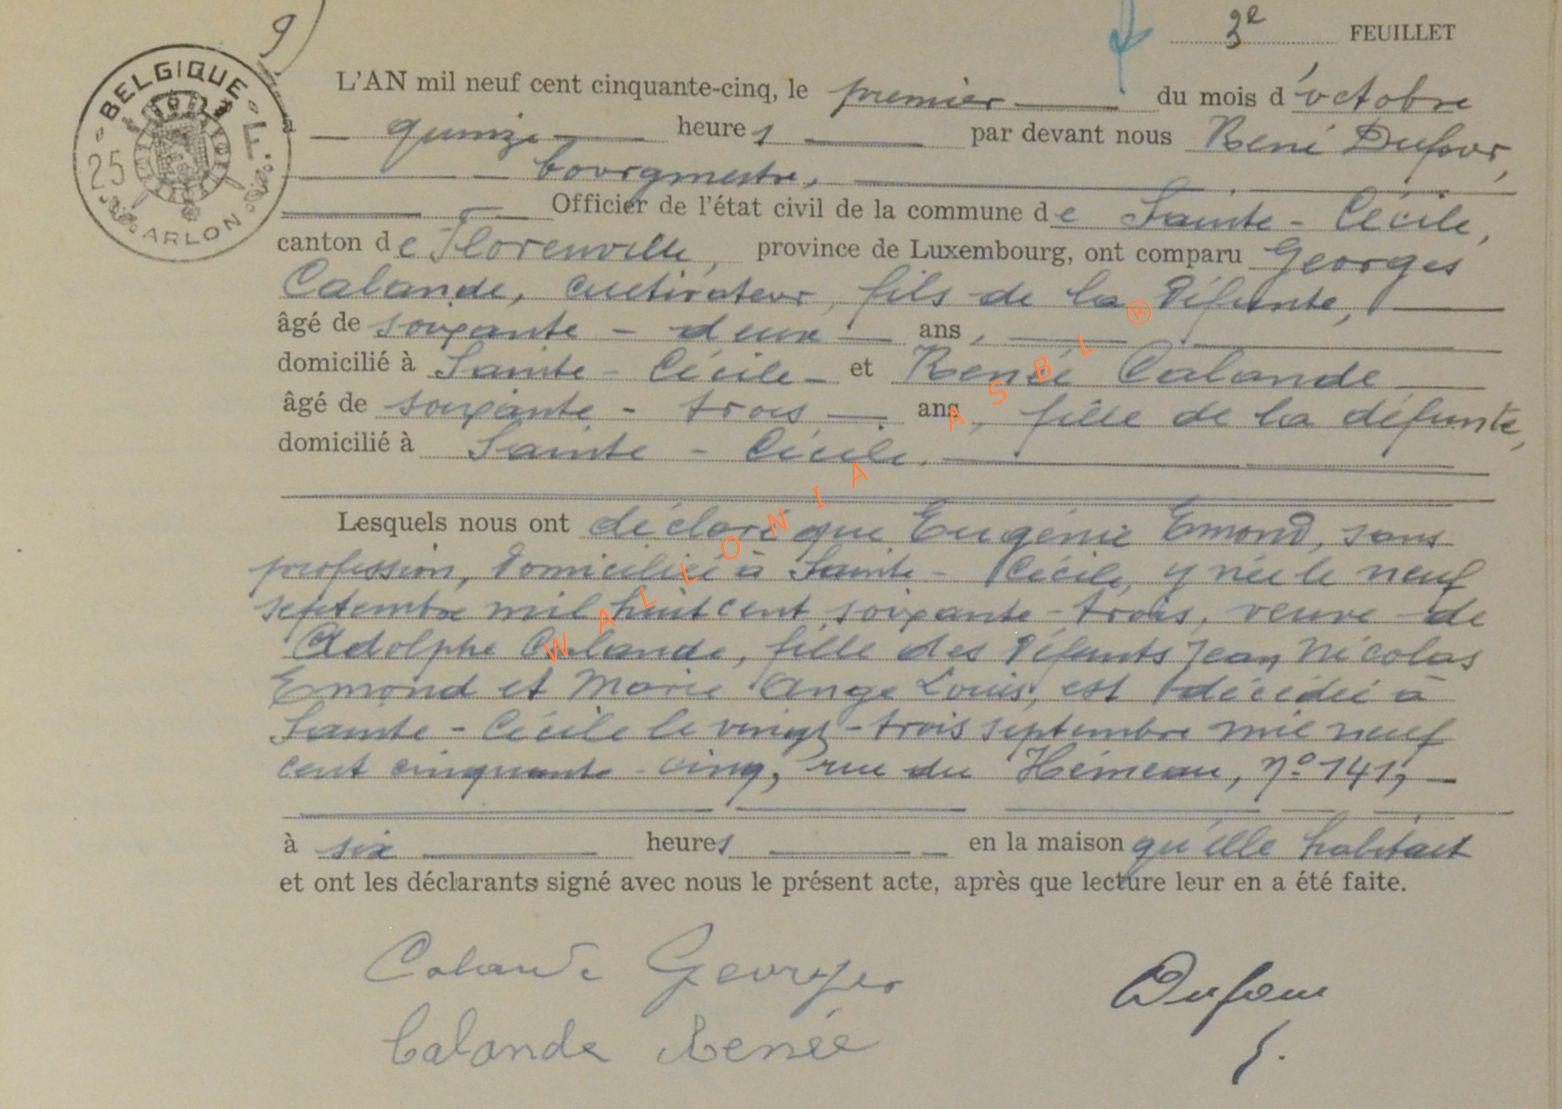 9)
3e FEUILLET
BELGIQUE
25 F.
ARLON
L'AN mil neuf cent cinquante-cinq, le premier du mois d'octobre
quinze heures par devant nous René Dufour,
bourgmestre,
Officier de l'état civil de la commune de Sainte-Cécile,
canton de Florenville, province de Luxembourg, ont comparu Georges
Calande, cultivateur, fils de la défunte,
âgé de soixante-deux ans,
domicilié à Sainte-Cécile et Renée Calande
âgé de soixante-trois ans, fille de la défunte,
domicilié à Sainte-Cécile.
Lesquels nous ont déclaré que Eugénie Emond, sans
profession, domiciliée à Sainte-Cécile, y née le neuf
septembre mil huit cent soixante-trois, veuve de
Adolphe Calande, fille des défunts Jean Nicolas
Emond et Marie Ange Louis, est décédée à
Sainte-Cécile le vingt-trois septembre mil neuf
cent cinquante-cinq, rue du Hémeau, n° 141,
à six heures en la maison qu'elle habitait
et ont les déclarants signé avec nous le présent acte, après que lecture leur en a été faite.
Calande Georges
Dufour
Calande Renée
WALLONIA ASBL ®